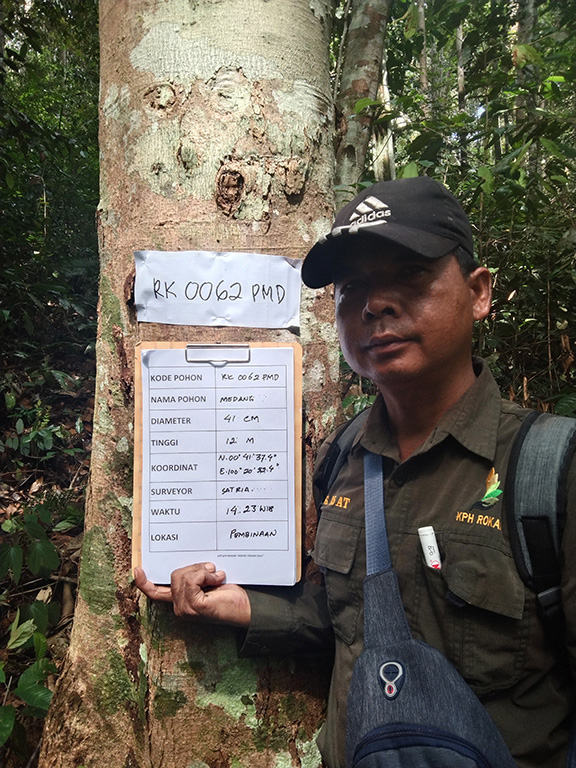 adidas
RK 0062 PMD
KODE POHON RK 0062 PMD
NAMA POHON MEDANG
DIAMETER 41 CM
TINGGI 12 M
KOORDINAT N.00°41'37.4" E.100°20'32.4"
SURVEYOR SATRIA
WAKTU 14.23 WIB
LOKASI PEMBINAAN
KPH ROKA